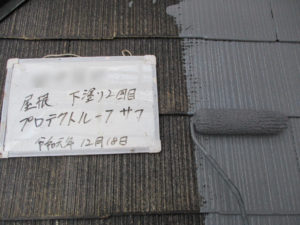 屋根 下塗り2回目
プロテクトルーフ サフ
令和元年 12月18日